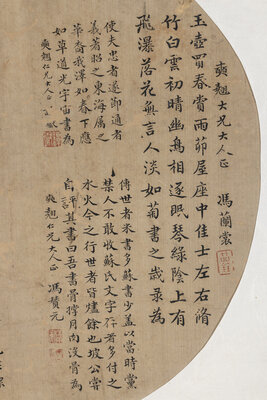 奭翹大兄大人正
玉壺買春賞雨茆屋座中佳士左右脩
竹白雲初晴幽鳥相逐眠琴綠陰上有
飛瀑落花無言人淡如菊書之歲為
馮蘭裳
使夫忠者遂者
義著招之東海屬之
華裔我澤如春下應
如草道光宇宙書為
奭翹仁兄大人正
傳世者米書多蘇書少蓋以當時黨
禁人不敢收蘇氏文字存者多付之
水火今之行世者皆燼餘也坡公嘗
自平其書曰吾書骨撐肉沒骨為
奭翹仁兄大人正 馮贊元